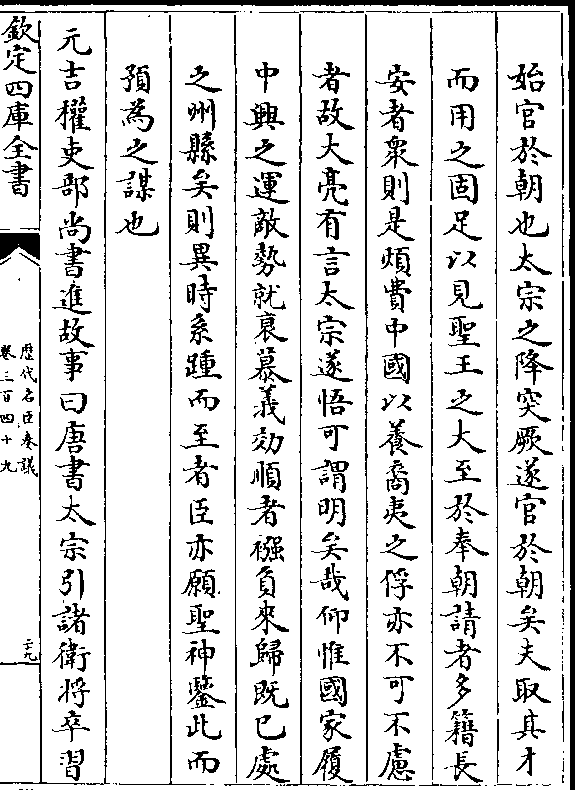 始官於朝也太宗之降突厥遂官於朝矣夫取其才
而用之固足以見聖王之大至於奉朝請者多籍長
安者衆則是煩費中國以養裔夷之俘亦不可不慮
者故大亮有言太宗遂悟可謂明矣哉仰惟國家履
中興之運敵勢就衰慕義効順者襁負來歸既已處
之州縣矣則異時系踵而至者臣亦願聖神鑒此而
預為之謀也
元吉權吏部尚書進故事曰唐書太宗引諸衛將卒習
欽定四庫全書
歴代名臣奏議
卷三百四十九
二十九